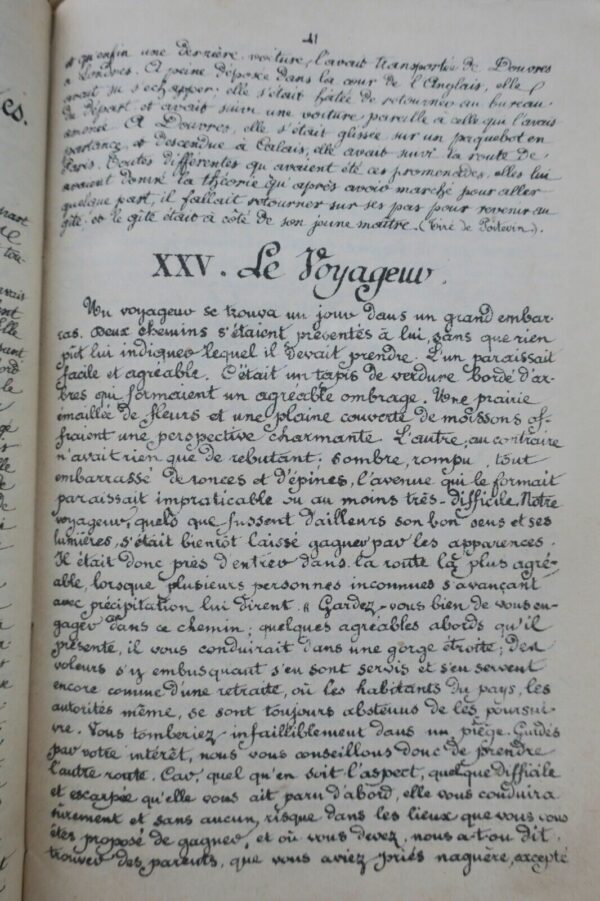 41
et qu'enfin une dernière voiture, l'avait transportée de Douvres
à Londres. A peine déposée dans la cour de l'Anglais, elle
avait su s'echapper; elle s'était hâtée de retourner au bureau
de départ et avait suivi une voiture pareille à celle qui l'avait
amenée. A Douvres, elle s'était glissée sur un paquebot en
partance, et descendue à Calais, elle avait suivi la route de
Paris. Toutes différentes qu'avaient été ces promenades, elles lui
avaient donné la théorie qu'après avoir marché pour aller
quelque part, il fallait retourner sur ses pas pour revenir au
gîte et le gîte était à côté de son jeune maître. (Tiré de Poitevin).
XXV. Le Voyageur.
Un voyageur se trouva un jour dans un grand embar-
ras. Deux chemins s'étaient présentés à lui, sans que rien
pût lui indiquer lequel il devait prendre. L'un paraissait
facile et agréable. C'était un tapis de verdure bordé d'ar-
bres qui formaient un agréable ombrage. Une prairie
émaillée de fleurs et une plaine couverte de moissons of-
fraient une perspective charmante. L'autre, au contraire
n'avait rien que de rebutant. Sombre, rompu, tout
embarrassé de ronces et d'épines, l'avenue qui le formait
paraissait impraticable ou au moins très-difficile. Notre
voyageur, quels que fussent d'ailleurs son bon sens et ses
lumières, s'était bientôt laissé gagner par les apparences.
Il était donc près d'entrer dans la route la plus agré-
able, lorsque plusieurs personnes inconnues s'avançant
avec précipitation lui dirent. « Gardez-vous bien de vous en-
gager dans ce chemin; quelques agréables abords qu'il
présente, il vous conduirait dans une gorge étroite; Des
voleurs s'y embusquant s'en sont servis et s'en servent
encore comme d'une retraite, où les habitants du pays, les
autorités même, se sont toujours abstenus de les poursui-
vre. Vous tomberiez infailliblement dans un piège. Guidés
par votre intérêt, nous vous conseillons donc de prendre
l'autre route. Car, quel qu'en soit l'aspect, quelque difficile
et escarpée qu'elle vous ait paru d'abord, elle vous conduira
sûrement et sans aucun risque dans les lieux que vous vous
êtes proposé de gagner, et où vous devez, nous a-t-on dit,
trouver des parents, que vous aviez priés naguère, excepté